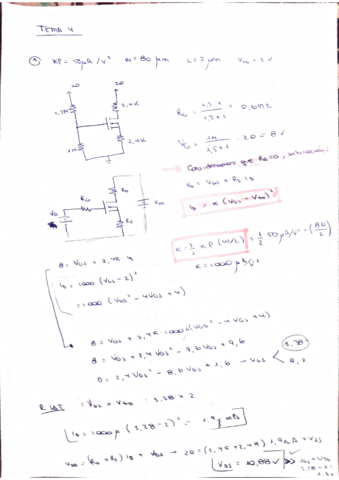 TEMA 4
① KP = 50 µA/V² W = 80 µm L = 2 µm Vto = 2 V
20 20
1,5M 2,4K
1M 2,4K
RG = 1,5·1 / 1,5+1 = 0,6MΩ
VG = 1M / 1,5+1 · 20 = 8V
Consideramos que RG=0,
VG = VGS + RS·ID
ID = K (VGS - Vto)²
RG RD
VG RS
K = 1/2 KP (W/L) = 1/2 50 µA/V² · (80/2)
K = 1000 µA/V²
8 = VGS + 2,4K · ID
ID = 1000 (VGS - 2)²
= 1000 (VGS² - 4VGS + 4)
8 = VGS + 2,4K · 1000µ (VGS² - 4VGS + 4)
8 = VGS + 2,4VGS² - 9,6VGS + 9,6
0 = 2,4VGS² - 8,6VGS + 1,6 → VGS 3,38
0,2
R. SAT : VGS > Vto : 3,38 > 2
ID = 1000µ (3,38 - 2)² = 1,9 mA
= (RD + RS) ID + VDS → 20 = (2,4K + 2,4K) 1,9mA + VDS
VDS = 10,88V